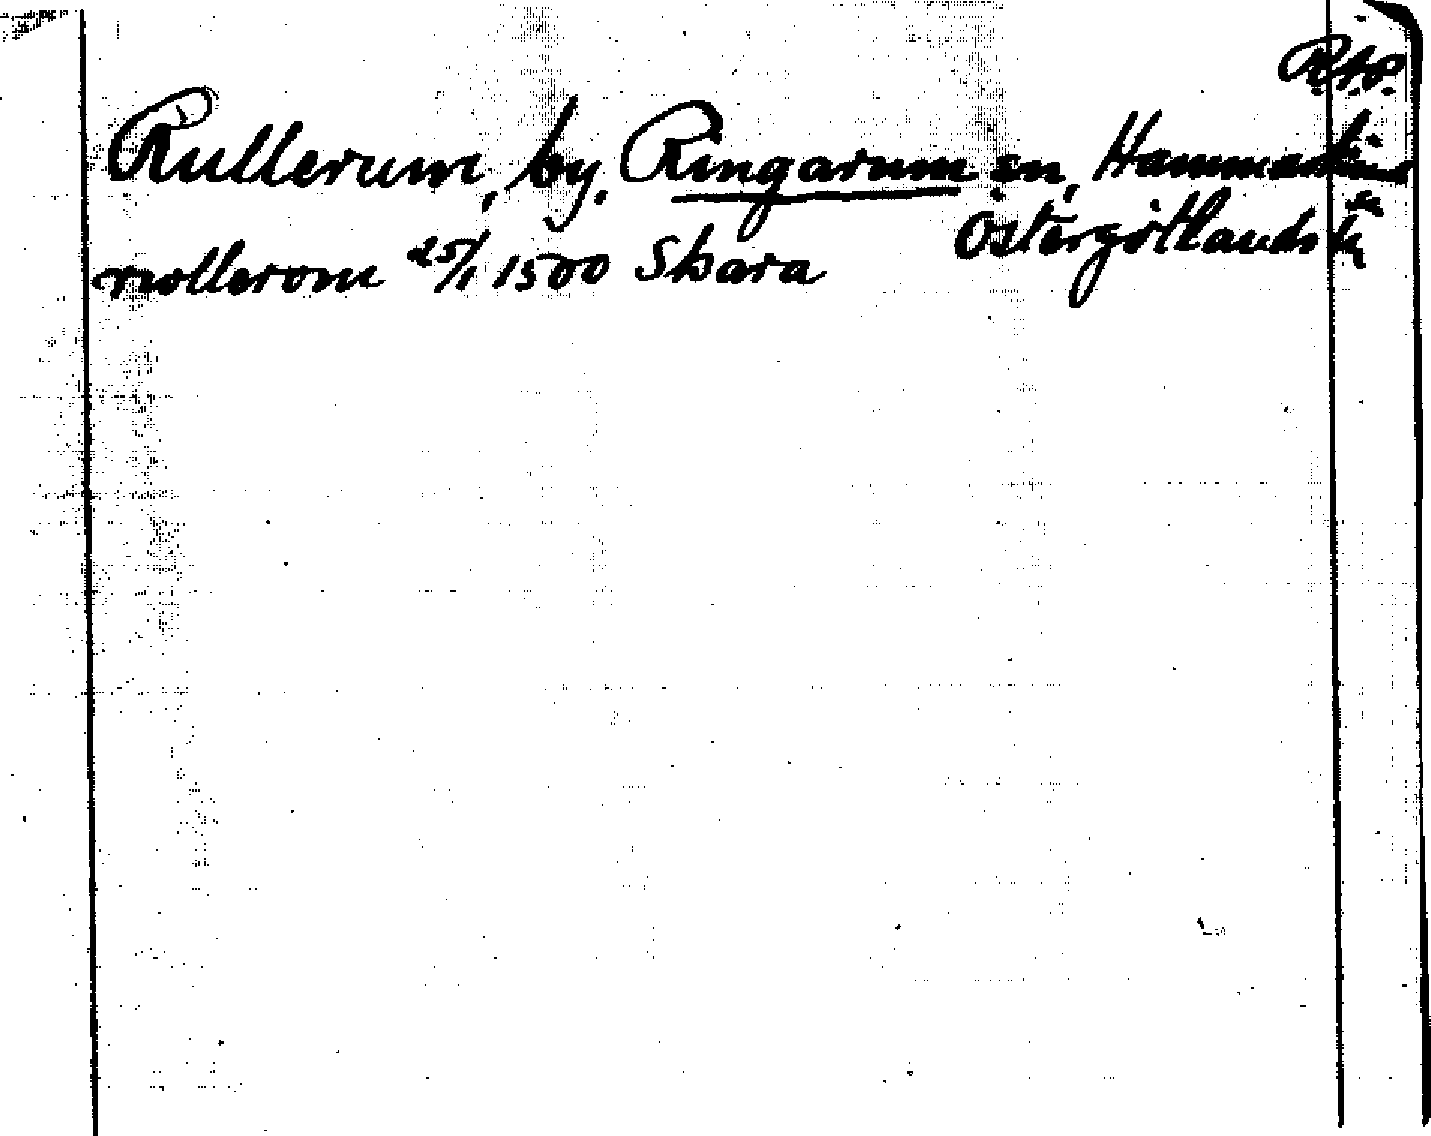 Rullerum, by, Ringarum sn, Hammarkind
Östergötlands l.
rwllerom 25/1 1500 Skara